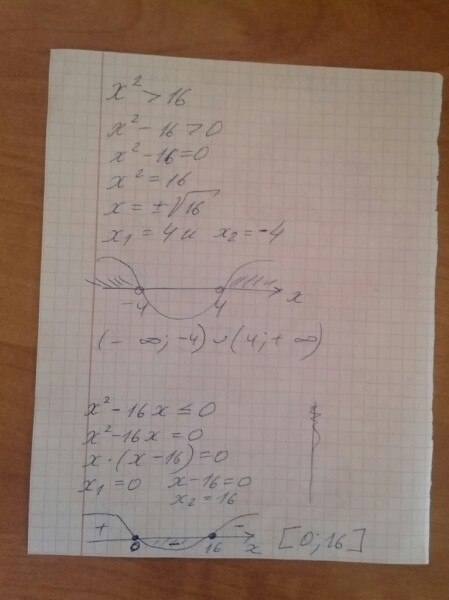 x² > 16
x² - 16 > 0
x² - 16 = 0
x² = 16
x = ±√16
x₁ = 4 и x₂ = -4
-4 4 x
(- ∞; -4) ∪ (4; + ∞)
x² - 16x ≤ 0
x² - 16x = 0
x · (x - 16) = 0
x₁ = 0 x - 16 = 0
x₂ = 16
+ - -
0 16 x [0; 16]